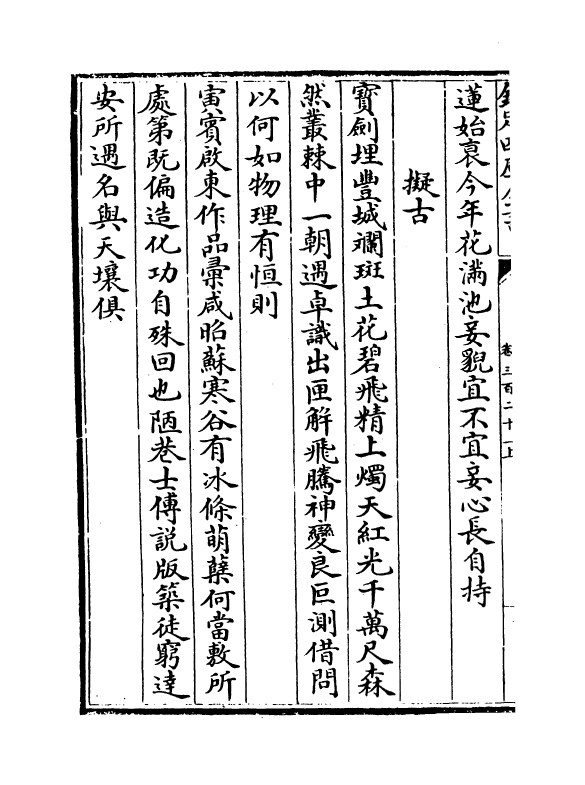 欽定四庫全書
卷三百二十一上
蓮始衰今年花滿池妾貌宜不宜妾心長自持
擬古
寶劍埋豐城斕斑土花碧飛精上燭天紅光千萬尺森
然叢棘中一朝遇卓識出匣解飛騰神變良叵測借問
以何如物理有恒則
寅賓啟東作品彚咸昭蘇寒谷有冰條萌蘖何當敷所
處第既偏造化功自殊回也陋巷士傅説版築徒窮達
安所遇名與天壤俱